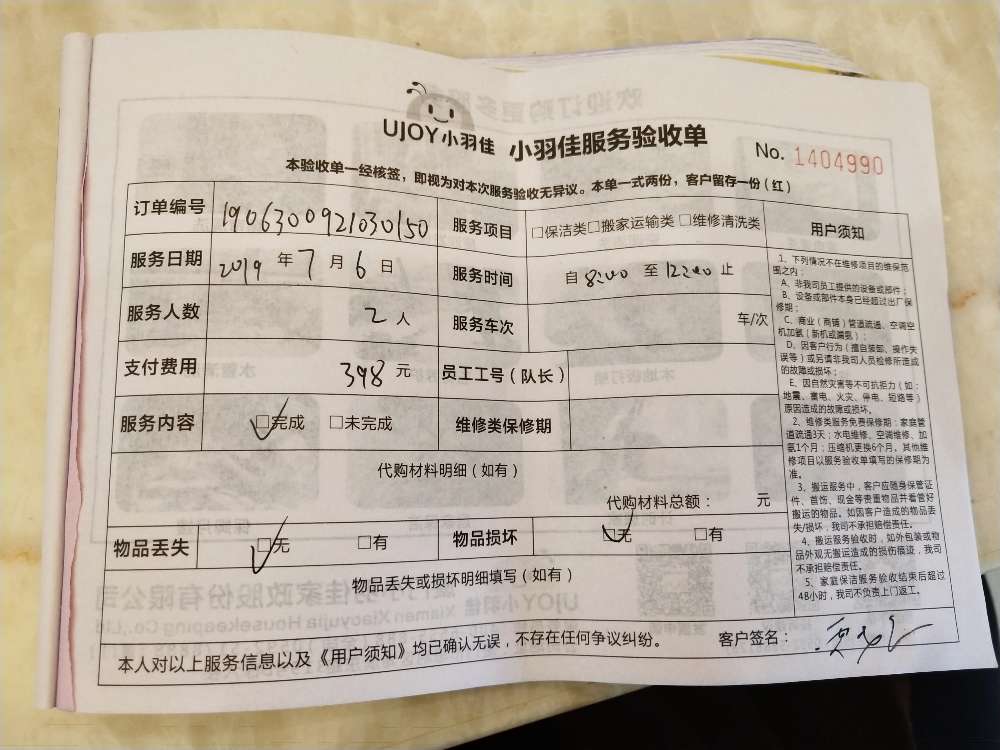 UJOY小羽佳 小羽佳服务验收单
No. 1404990
本验收单一经核签，即视为对本次服务验收无异议。本单一式两份，客户留存一份（红）
订单编号 1906300921030150 服务项目 □保洁类□搬家运输类 □维修清洗类
服务日期 2019 年 7 月 6 日 服务时间 自 8:00 至 12:00 止
服务人数 2 人 服务车次 车/次
支付费用 398 元 员工工号（队长）
服务内容 ☑完成 □未完成 维修类保修期
代购材料明细（如有）
代购材料总额： 元
物品丢失 ☑无 □有 物品损坏 ☑无 □有
物品丢失或损坏明细填写（如有）
本人对以上服务信息以及《用户须知》均已确认无误，不存在任何争议纠纷。 客户签名：
用户须知
1、下列情况不在维修项目的维保范
围之内：
A、非我司员工提供的设备或部件；
B、设备或部件本身已经超过出厂保
修期；
C、商业（商铺）管道疏通、空调空
机加氨（新机或漏氨）；
D、因客户行为（擅自装卸、操作失
误等）或另请非我司人员检修所造成
的故障或损坏；
E、因自然灾害等不可抗拒力（如：
地震、雷电、火灾、停电、短路等）
原因造成的故障或损坏。
2、维修类服务免费保修期：家庭管
道疏通3天；水电维修、空调维修、加
氨1个月；压缩机更换6个月。其他维
修项目以服务验收单填写的保修期为
准。
3、搬运服务中，客户应随身保管证
件、首饰、现金等贵重物品并看管好
搬运的物品。如因客户造成的物品丢
失/损坏，我司不承担赔偿责任。
4、搬运服务验收时，如外包装或物
品外观无搬运造成的损伤痕迹，我司
不承担赔偿责任。
5、家庭保洁服务验收结束后超过
48小时，我司不负责上门返工。